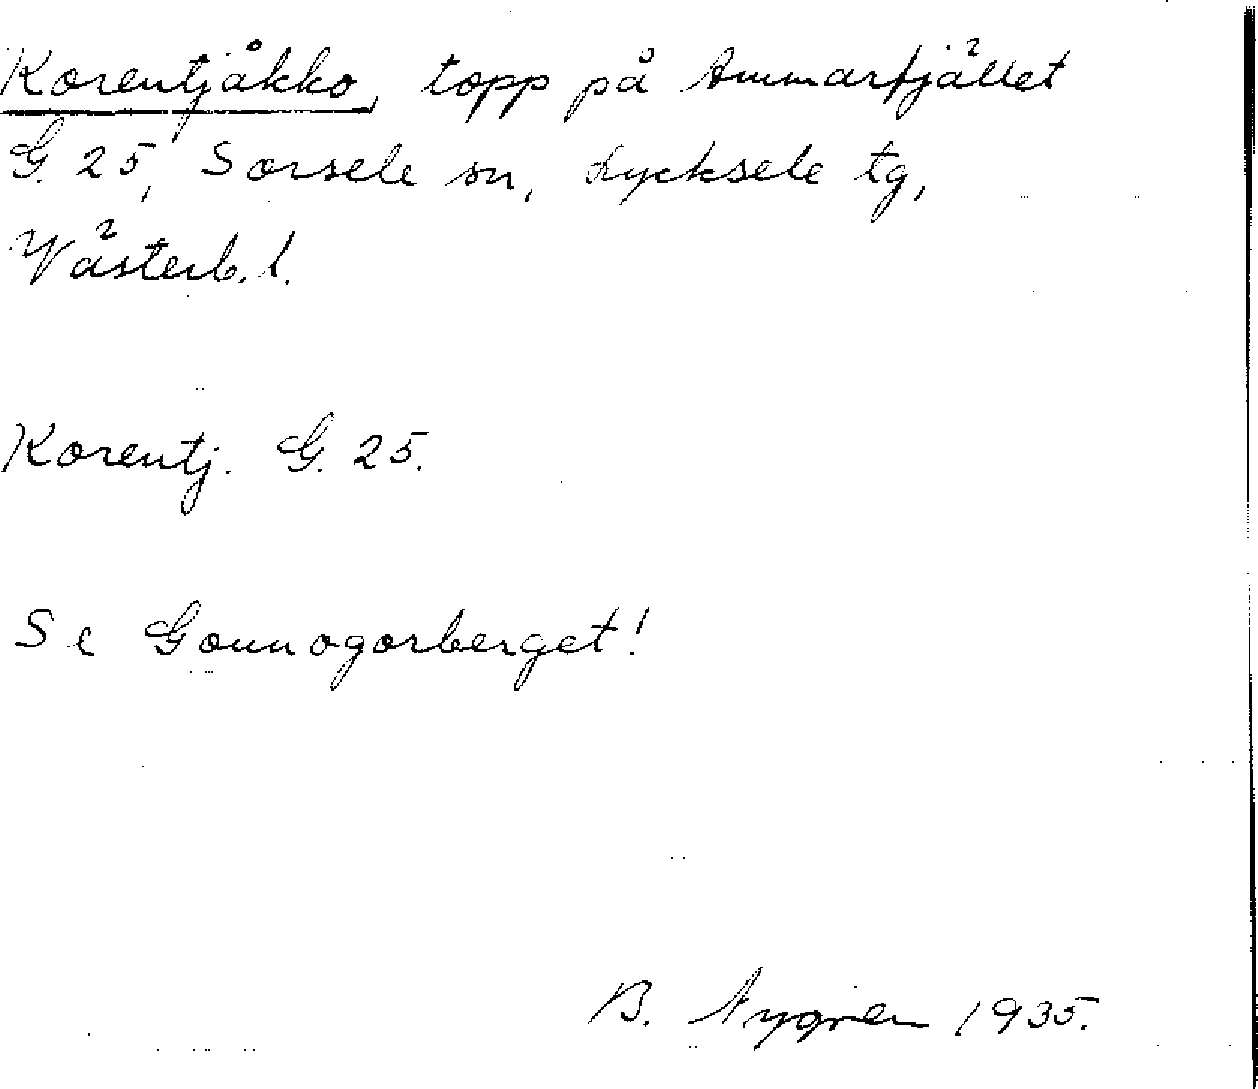 Korentjåkko, topp på Ammarfjället
G. 25, Sorsele sn, Lycksele tg,
Västerb. l.
Korentj. G. 25.
Se Gounogorberget!
B. Nygren 1935.